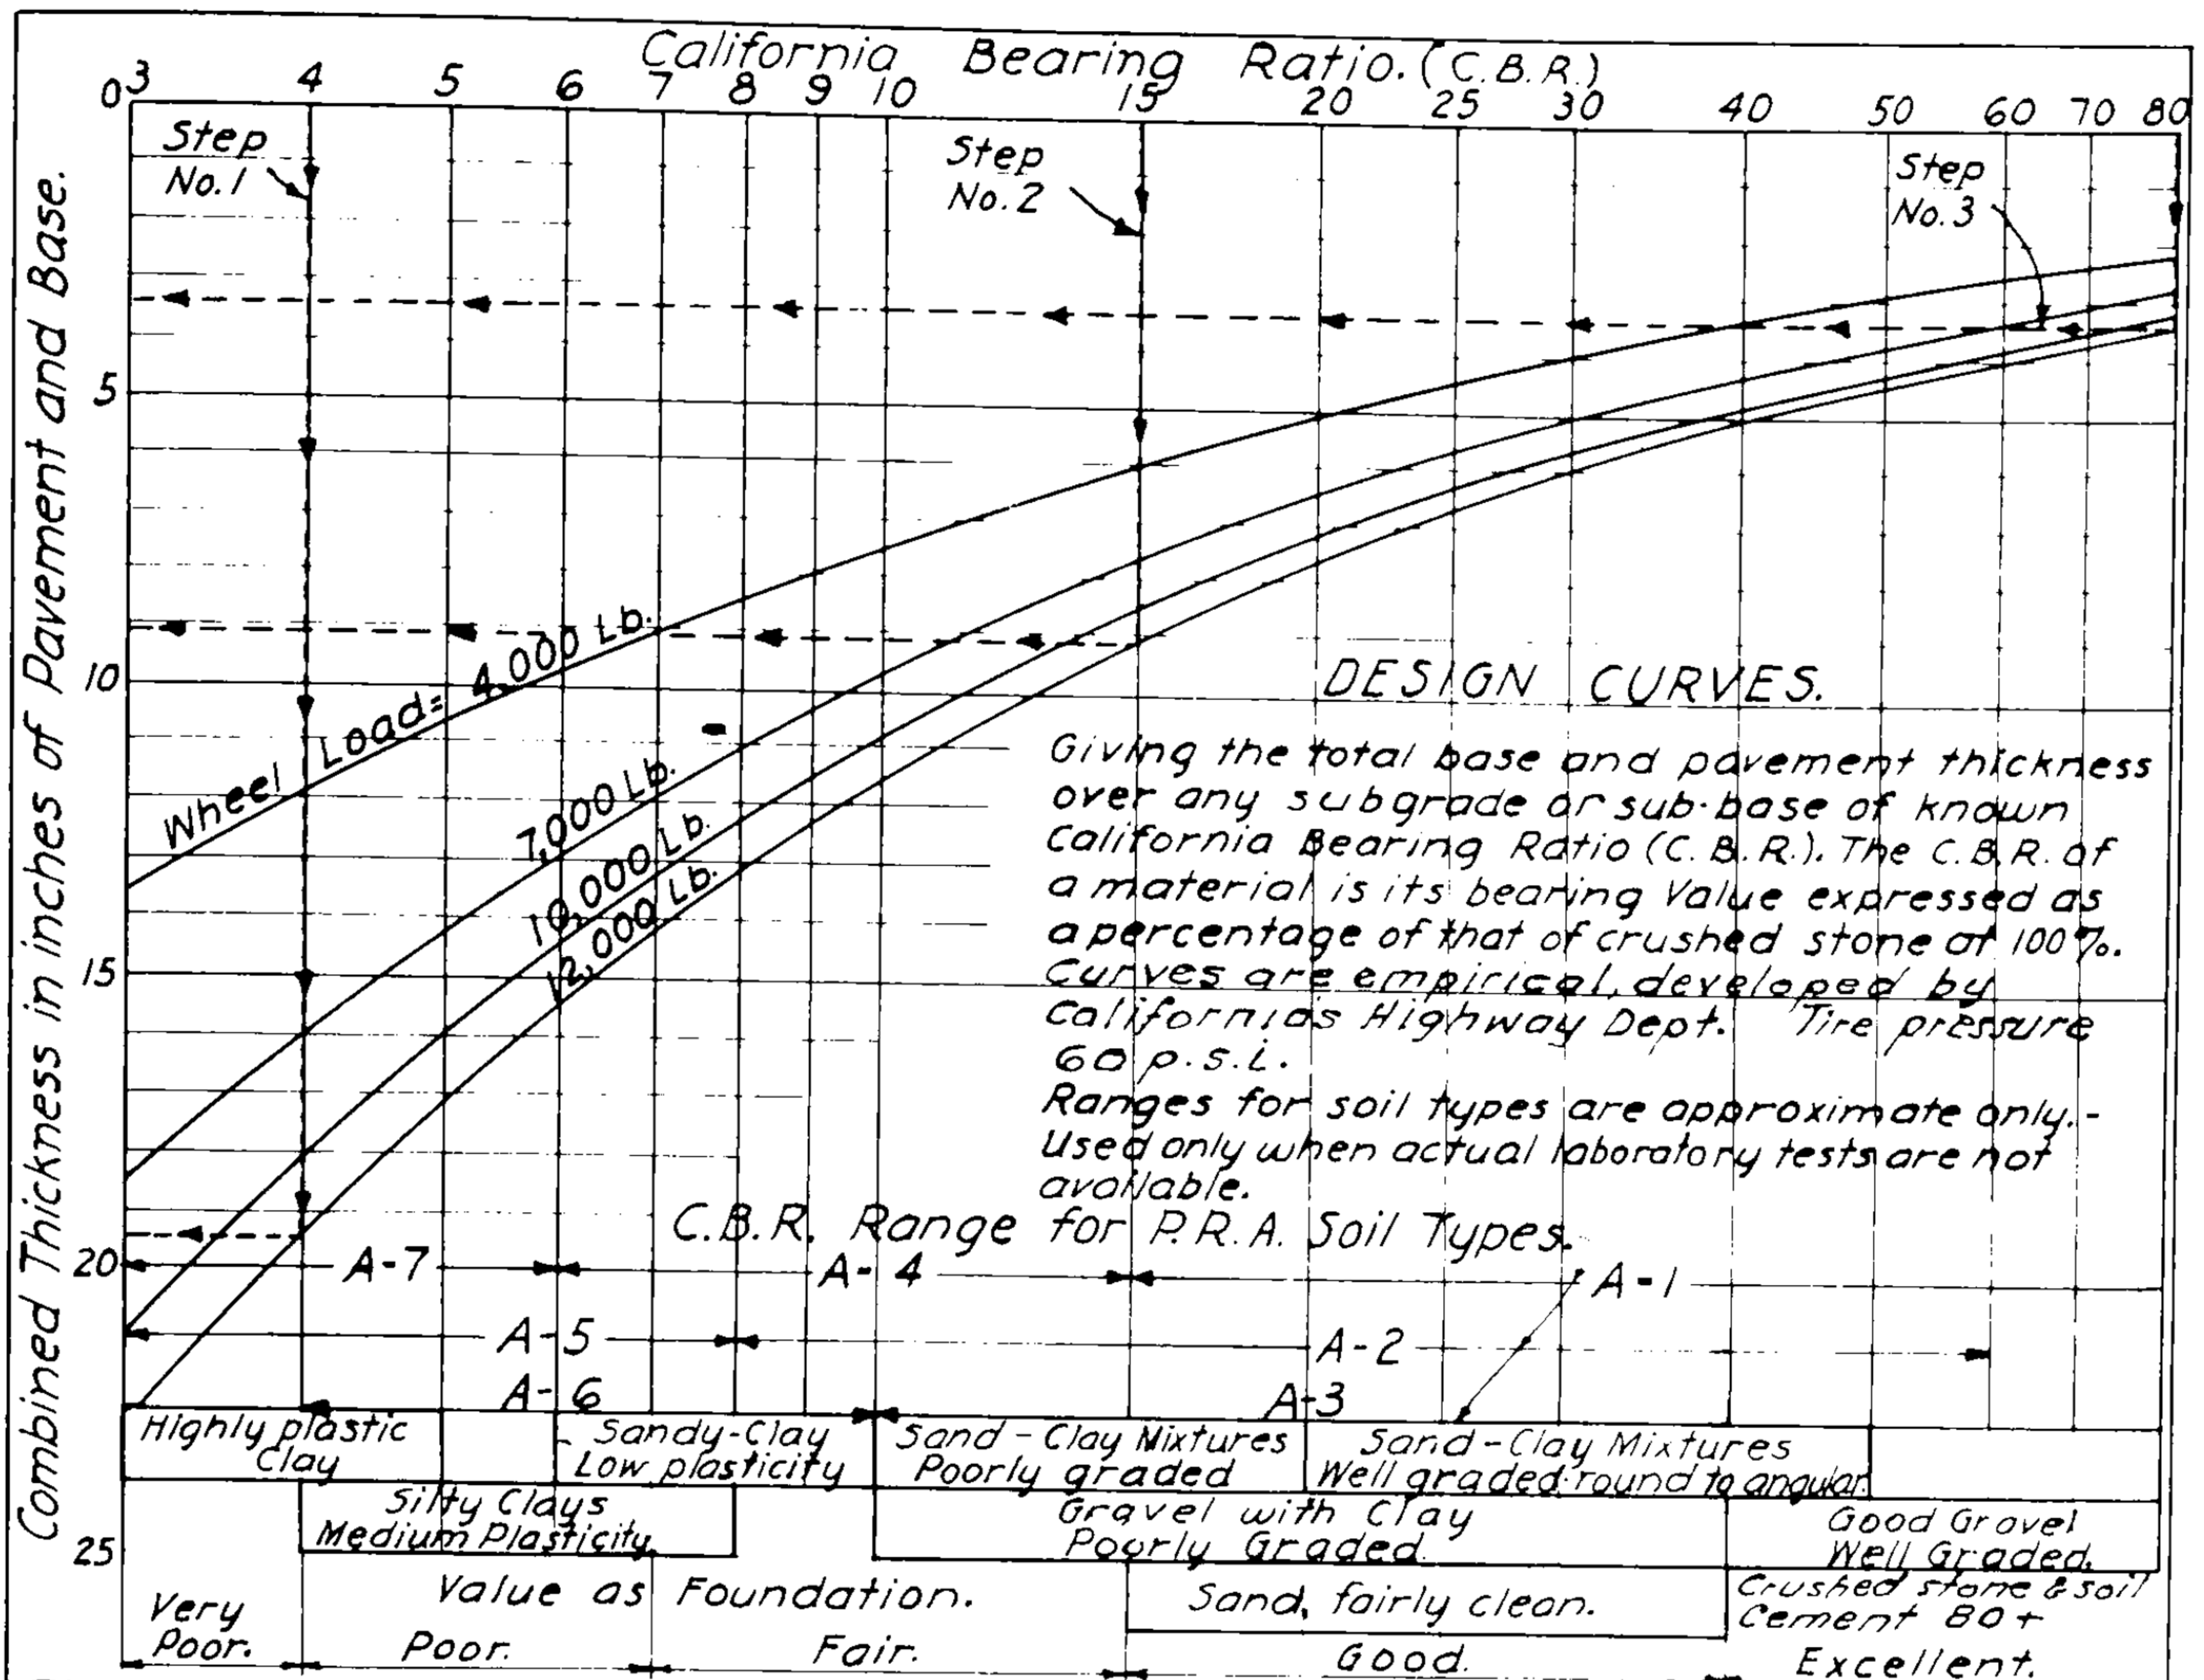 California Bearing Ratio. (C.B.R.)
3 4 5 6 7 8 9 10 15 20 25 30 40 50 60 70 80
Combined Thickness in inches of Pavement and Base.
0
5
10
15
20
25
Step
No. 1
Step
No. 2
Step
No. 3
Wheel Load = 4,000 Lb.
7,000 Lb.
10,000 Lb.
12,000 Lb.
DESIGN CURVES.
Giving the total base and pavement thickness
over any subgrade or sub-base of known
California Bearing Ratio (C.B.R.). The C.B.R. of
a material is its bearing Value expressed as
a percentage of that of crushed stone at 100%.
Curves are empirical, developed by
California's Highway Dept. Tire pressure
60 p.s.i.
Ranges for soil types are approximate only.-
Used only when actual laboratory tests are not
available.
C.B.R. Range for P.R.A. Soil Types.
A-7 A-4 A-1
A-5 A-2
A-6 A-3
Highly plastic
Clay
Sandy-Clay
Low plasticity
Sand-Clay Mixtures
Poorly graded
Sand-Clay Mixtures
Well graded-round to angular.
Silty Clays
Medium Plasticity.
Gravel with Clay
Poorly Graded.
Good Gravel
Well Graded.
Value as Foundation.
Sand, fairly clean.
Crushed stone & soil
Cement 80+
Very
Poor.
Poor.
Fair.
Good.
Excellent.